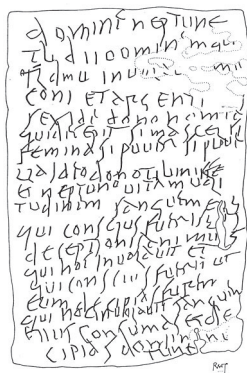 domine neptune
qui
inuola
coni et argenti
sex ideo dono nomina
qui decepit si mascel si
femina si puuer si puuella
ideo dono tibi niske
et neptuno uitam uali
tudinem sanguem
qui conscius fueris eius
deceptionis animus
qui hoc inuolauit et
qui conscius fuerit ut
eum decipias furem
qui hoc inuolauit sanguem
eiius consumas et de
cipias domine nep
tune